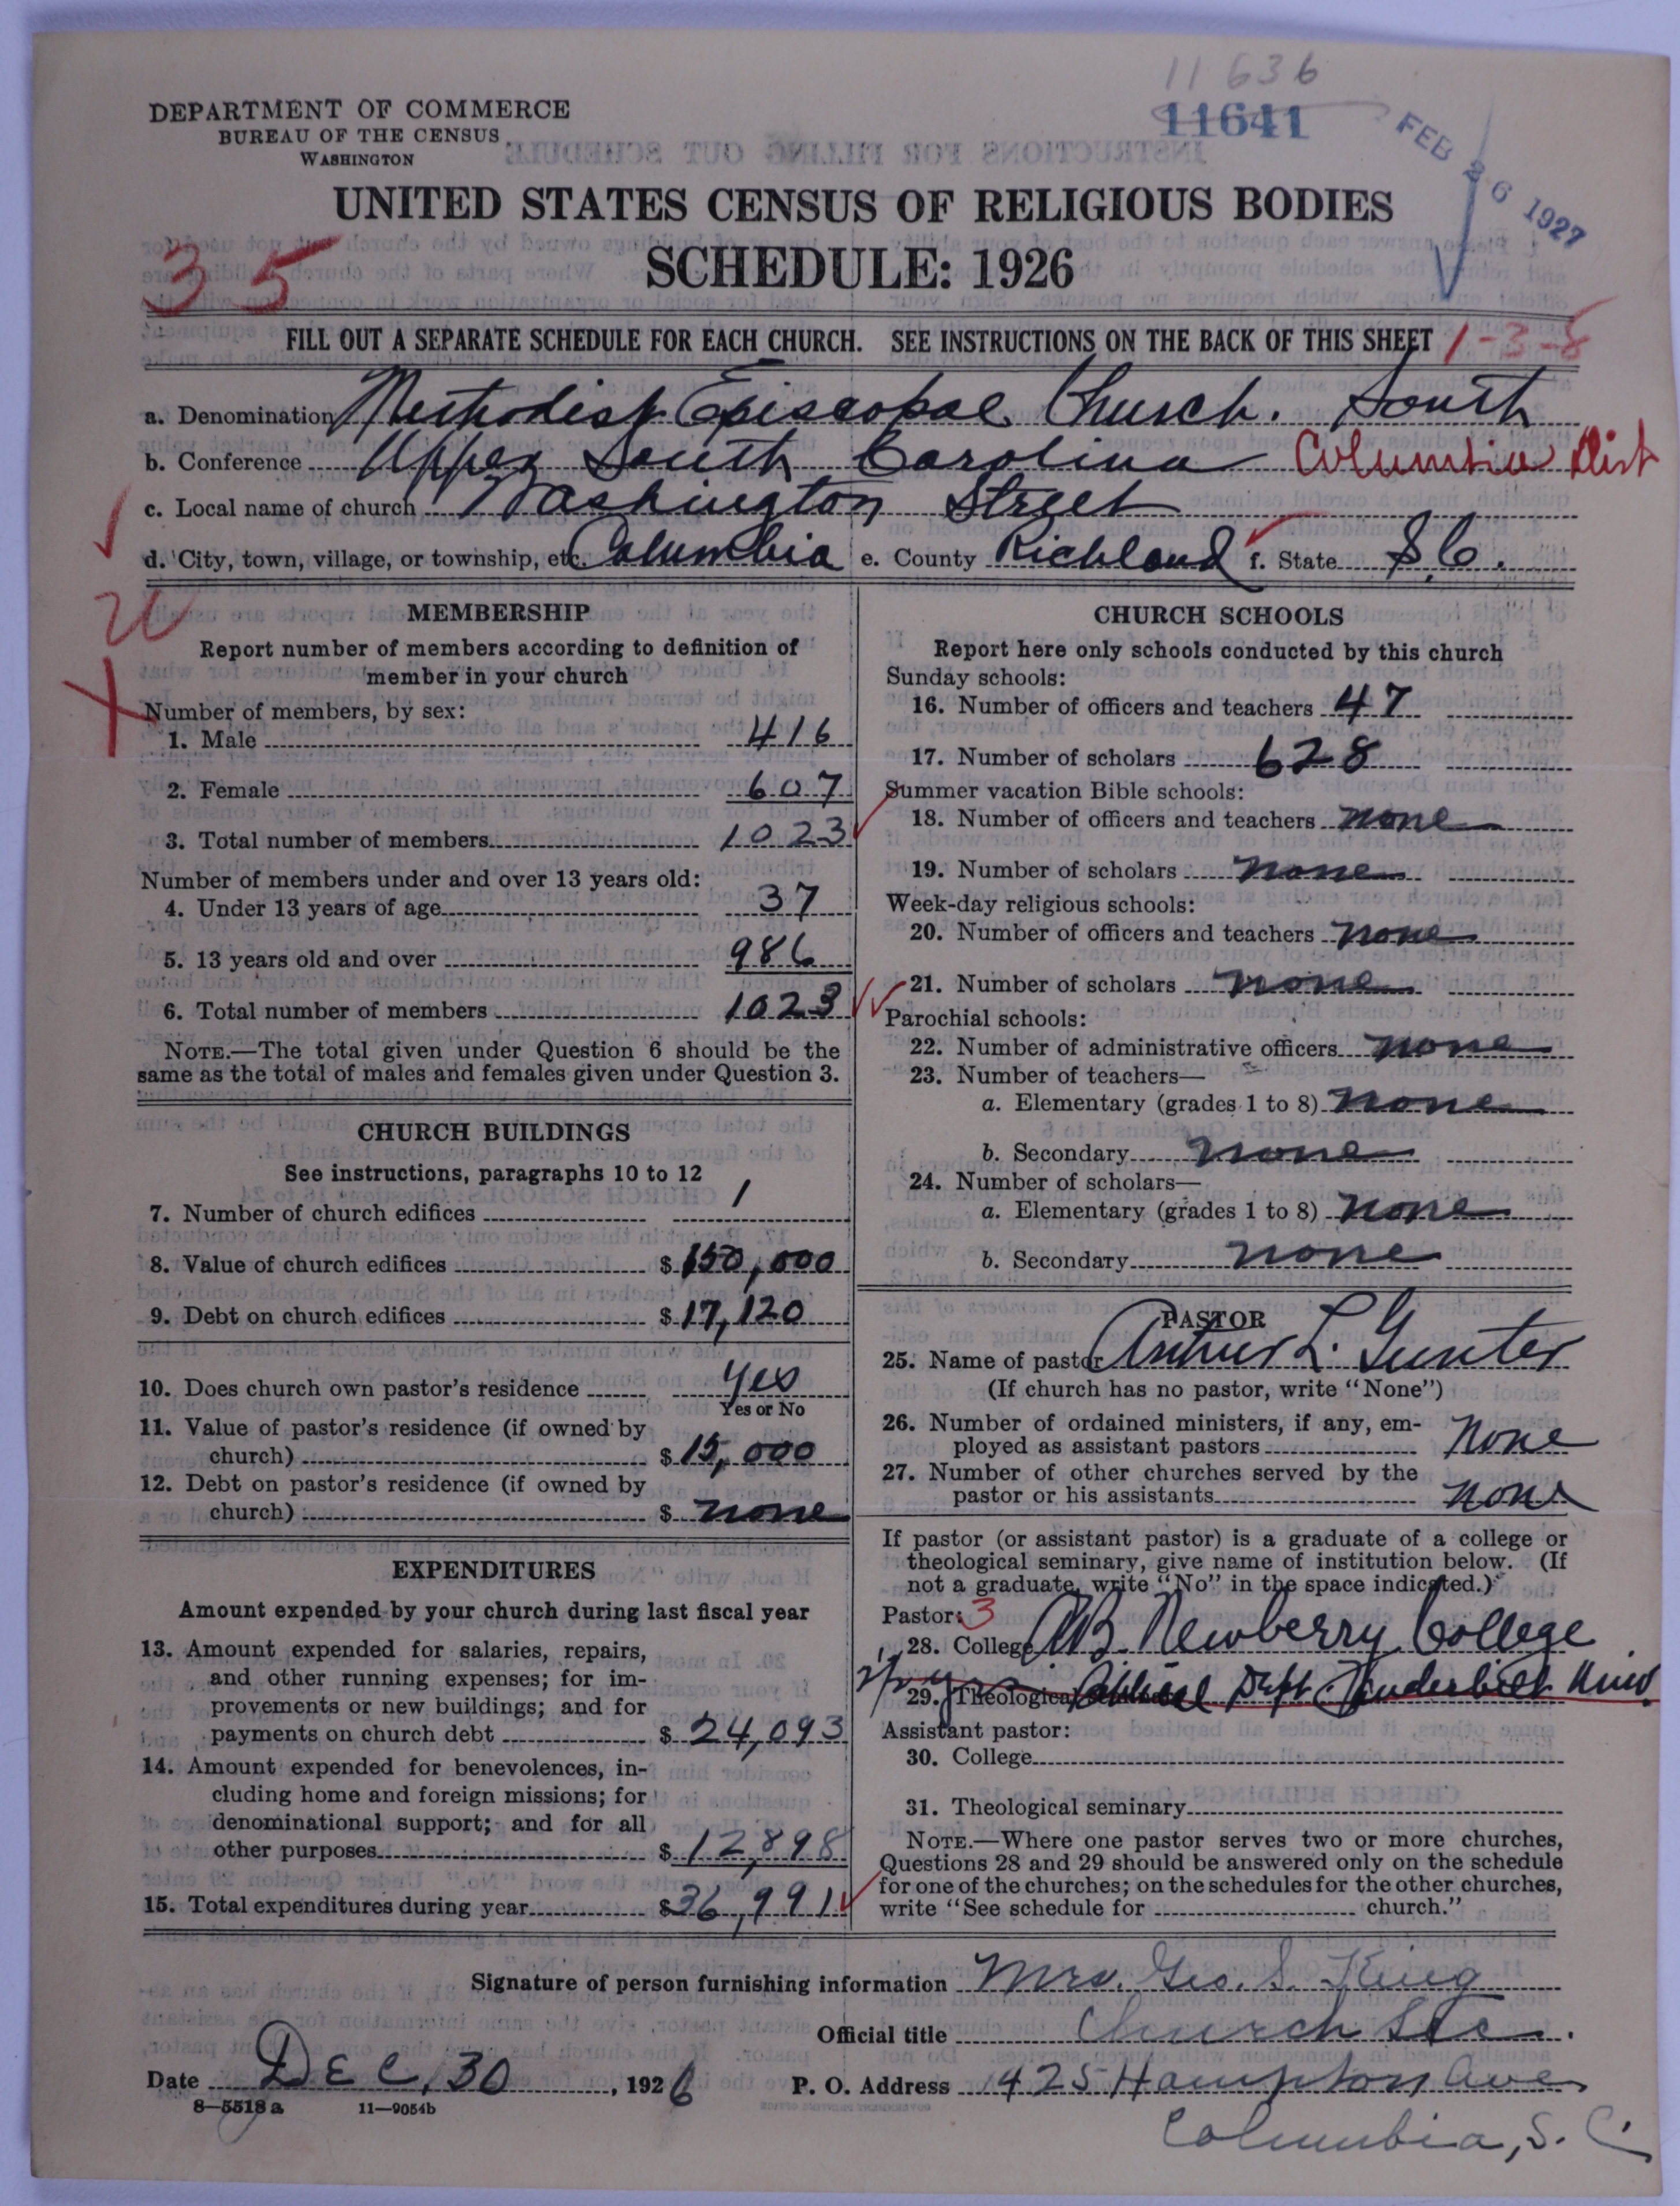 11636
DEPARTMENT OF COMMERCE
11641
BUREAU OF THE CENSUS
WASHINGTON
FEB 26 1927
UNITED STATES CENSUS OF RELIGIOUS BODIES
35
SCHEDULE: 1926
FILL OUT A SEPARATE SCHEDULE FOR EACH CHURCH. SEE INSTRUCTIONS ON THE BACK OF THIS SHEET 1-3-8
a. Denomination Methodist Episcopal Church. South
b. Conference Upper South Carolina Columbia Dist
c. Local name of church Washington Street
d. City, town, village, or township, etc. Columbia e. County Richland f. State S.C.
MEMBERSHIP
Report number of members according to definition of
member in your church
Number of members, by sex:
1. Male 416
2. Female 607
3. Total number of members 1023
Number of members under and over 13 years old:
4. Under 13 years of age 37
5. 13 years old and over 986
6. Total number of members 1023
NOTE.—The total given under Question 6 should be the
same as the total of males and females given under Question 3.
CHURCH BUILDINGS
See instructions, paragraphs 10 to 12
7. Number of church edifices 1
8. Value of church edifices $ 150,000
9. Debt on church edifices $ 17,120
10. Does church own pastor's residence Yes
Yes or No
11. Value of pastor's residence (if owned by
church) $ 15,000
12. Debt on pastor's residence (if owned by
church) $ none
EXPENDITURES
Amount expended by your church during last fiscal year
13. Amount expended for salaries, repairs,
and other running expenses; for im-
provements or new buildings; and for
payments on church debt $ 24,093
14. Amount expended for benevolences, in-
cluding home and foreign missions; for
denominational support; and for all
other purposes $ 12,898
15. Total expenditures during year $ 36,991
CHURCH SCHOOLS
Report here only schools conducted by this church
Sunday schools:
16. Number of officers and teachers 47
17. Number of scholars 628
Summer vacation Bible schools:
18. Number of officers and teachers none
19. Number of scholars none
Week-day religious schools:
20. Number of officers and teachers none
21. Number of scholars none
Parochial schools:
22. Number of administrative officers none
23. Number of teachers—
a. Elementary (grades 1 to 8) none
b. Secondary none
24. Number of scholars—
a. Elementary (grades 1 to 8) none
b. Secondary none
PASTOR
25. Name of pastor Arthur L. Gunter
(If church has no pastor, write "None")
26. Number of ordained ministers, if any, em-
ployed as assistant pastors None
27. Number of other churches served by the
pastor or his assistants none
If pastor (or assistant pastor) is a graduate of a college or
theological seminary, give name of institution below. (If
not a graduate, write "No" in the space indicated.)
Pastor: 3
28. College AB Newberry College
29. Theological Biblical Dept. Vanderbilt Univ.
Assistant pastor:
30. College
31. Theological seminary
NOTE.—Where one pastor serves two or more churches,
Questions 28 and 29 should be answered only on the schedule
for one of the churches; on the schedules for the other churches,
write "See schedule for church."
Signature of person furnishing information Mrs. Geo. S. King
Official title Church Sec.
Date Dec. 30, 1926 P. O. Address 1425 Hampton Ave
8—5518 a 11—9054b
Columbia, S. C.